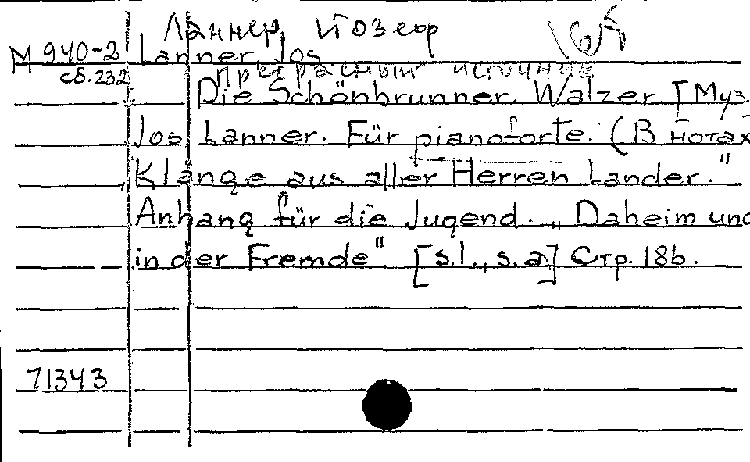 Ланнер, Йозеф
М 940-2 Lanner Jos
сб. 232 Прекрасный источник
Die Schönbrunner. Walzer [Муз.
Jos. Lanner. Für pianoforte. (В нотах
Klänge aus aller Herren Länder."
Anhang für die Jugend. „Daheim und
in der Fremde" [s.l., s.a.] Стр. 18b.
71343